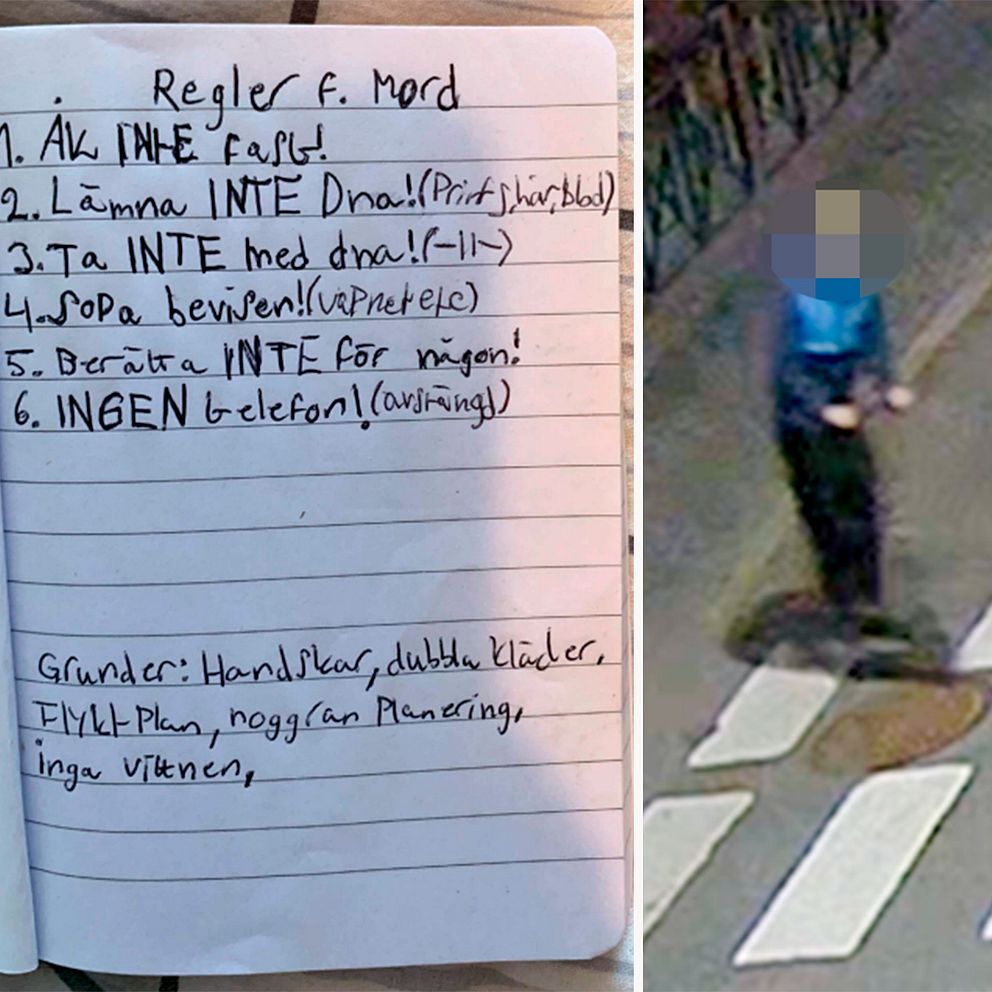 Regler f. Mord
1. Åk INTE fast!
2. Lämna INTE Dna! (Print, hår, blod)
3. Ta INTE med dna! (-11-)
4. Sopa bevisen! (vapnet etc)
5. Berätta INTE för någon!
6. INGEN telefon! (avstängd)
Grunder: Handskar, dubbla kläder,
Flyktplan, noggran Planering,
inga vittnen,